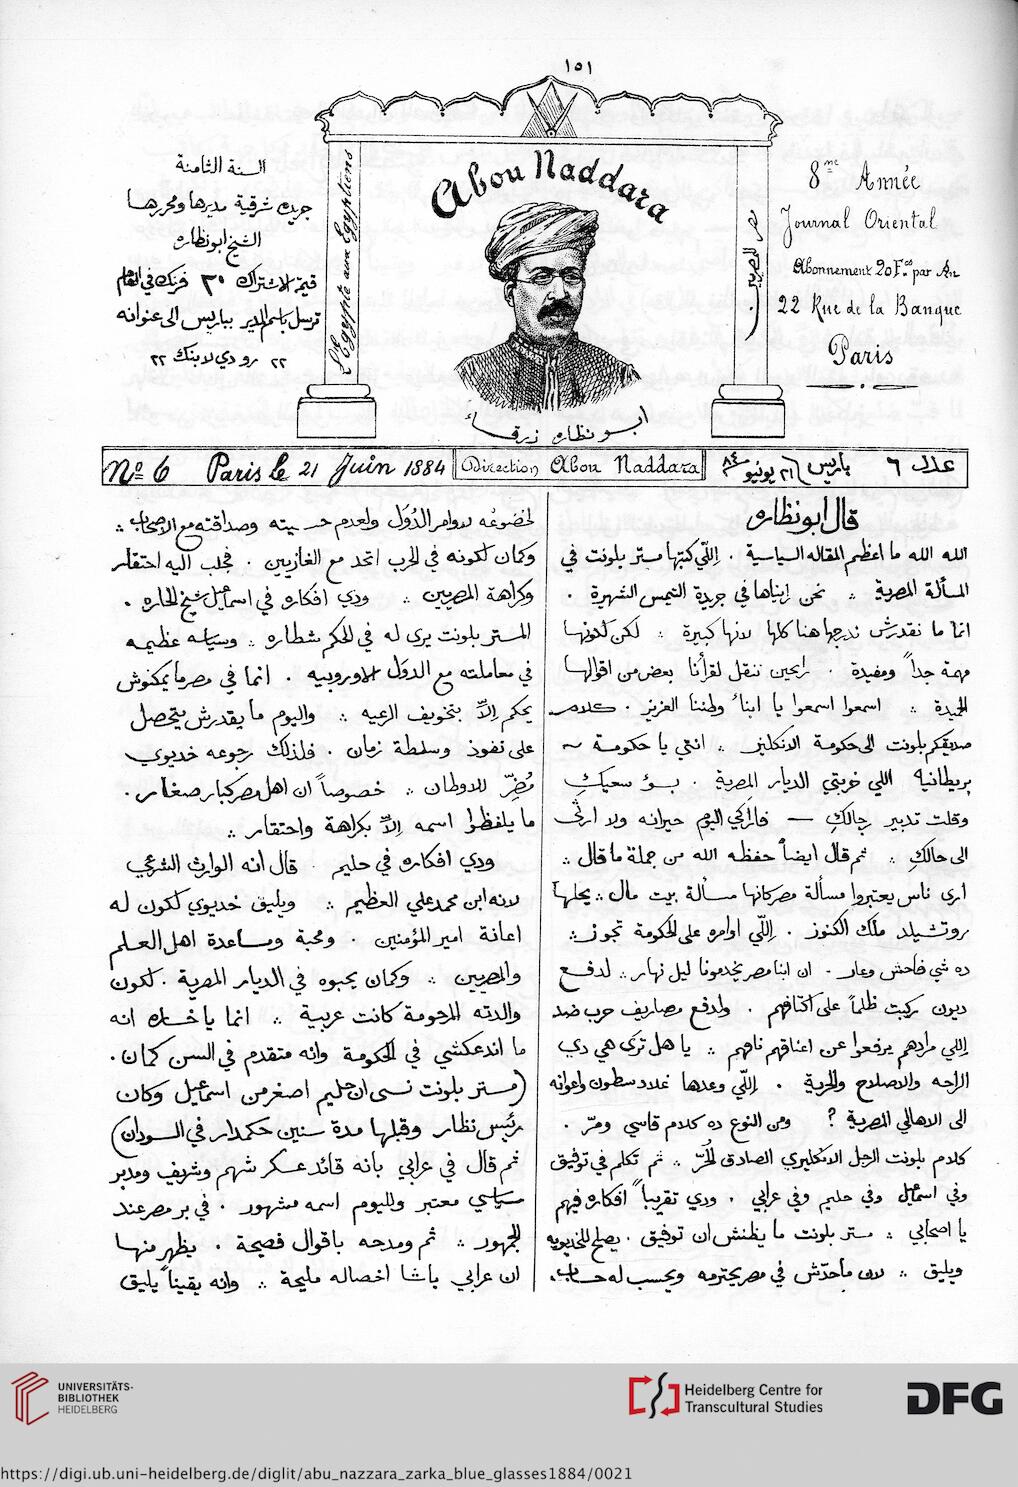 ١٥١
السنة الثامنة
جريدة شرقية مديرها ومحررها
الشيخ ابو نظاره
قيمة الاشتراك ٢٠ فرنك في العام
ترسل باسم المدير بباريس الى عنوانه
٢٢ رو دي لا بنك ٢٢
L'Egypte aux Egyptiens
Abou Naddara
مصر للمصريين
ابو نظاره زرقاء
8me Année
Journal Oriental
Abonnement 20 Fcs par An
22 Rue de la Banque
Paris
No 6 Paris le 21 Juin 1884 Direction Abou Naddara باريس ٢١ يونيو ٨٤ عدد ٦
قال ابو نظاره
الله الله ما اعظم المقاله السياسية . اللّي كتبها مستر بلونت في
المسألة المصرية ؞ نحن رايناها في جريدة الشمس الشهيرة .
انما ما نقدرش ندرجها هنا كلها لانها كبيرة ؞ لكن لكونها
مهمة جداً ومفيدة . رايحين ننقل لقرأنا بعض من اقوالها
الجيدة ؞ اسمعوا اسمعوا يا ابناء وطننا العزيز . كلام
صديقكم بلونت الى حكومة الانكليز ؞ انتي يا حكومة ~
بريطانية اللي خربتي الديار المصرية . بسؤ سعيكِ
وقلت تدبير رجالكِ — فاراكي اليوم حيرانه ولا ارثى
الى حالكِ ؞ ثم قال ايضاً حفظه الله من جملة ما قال ؞
ارى ناس يعتبروا مسألة مصر كانها مسألة بيت مال ؞ يحلها
روتشيلد ملك الكنوز . اللّي اوامره على الحكومة تجوز ؞
ده شي فاحش وعار . ان ابنا مصر يخدمونا ليل نهار ؞ لدفع
ديون ركبت ظلماً على اكتافهم . ولدفع مصاريف حرب ضد
اللي مرادهم يرفعوا عن اعناقهم نافهم ؞ يا هل ترى هي دي
الراحه والاصلاح والحرية . اللّي وعدها غلادسطون واعوانه
الى الاهالي المصرية ؟ ومن النوع ده كلام قاسي ومرّ .
كلام بلونت الرجل الانكليزي الصادق الحُرّ ؞ ثم تكلم في توفيق
وفي اسمعيل وفي حليم وفي عرابي . ودي تقريباً افكاره فيهم
يا اصحابي ؞ مستر بلونت ما يظنش ان توفيق . يصلح للخديويه
ويليق ؞ لان ماحدّش في مصر يحترمه ويحسب له حساب .
لخضوعه لاوامر الدُوَل ولعدم حسيته وصداقته مع الاصحاب ؞
وكمان لكونه في الحرب اتحد مع الغازيين . فجلب اليه احتقار
وكراهة المصريين ؞ ودي افكاره في اسماعيل شيخ الحاره .
المستر بلونت يرى له في الحكم شطاره ؞ وسياسه عظيمه
في معاملته مع الدول الاوروبيه . انما في مصر ما يمكنوش
يحكم الاّ بتخويف الرعيه ؞ واليوم ما يقدرش يتحصل
على نفوذ وسلطة زمان . فلذلك رجوعه خديوي
مُضِرّ للاوطان ؞ خصوصاً ان اهل مصر كبار صغار .
ما يلفظوا اسمه الاّ بكراهة واحتقار ؞
ودي افكاره في حليم . قال انه الوارث الشرعي
لانه ابن محمد علي العظيم ؞ ويليق خديوي لكون له
اعانة امير المؤمنين . ومحبة ومساعدة اهل العلم
والمصريين ؞ وكمان يحبوه في الديار المصرية . لكون
والدته المرحومة كانت عربية ؞ انما يا خساره انه
ما اندعكشي في الحكومة وانه متقدم في السن كمان .
(مستر بلونت نسى ان حليم اصغر من اسماعيل وكان
رئيس نظار وقبلها مدة سنين حكمدار في السودان)
ثم قال في عرابي بانه قائد عسكر شهم وشريف ومدبر
سياسي معتبر ولليوم اسمه مشهور . في بر مصر عند
الجمهور ؞ ثم ومدحه باقوال فصيحة . يظهر منها
ان عرابي باشا اخصاله مليحة ؞ وانه يقيناً يليق
UNIVERSITÄTS-
BIBLIOTHEK
HEIDELBERG
Heidelberg Centre for
Transcultural Studies
DFG
https://digi.ub.uni-heidelberg.de/diglit/abu_nazzara_zarka_blue_glasses1884/0021